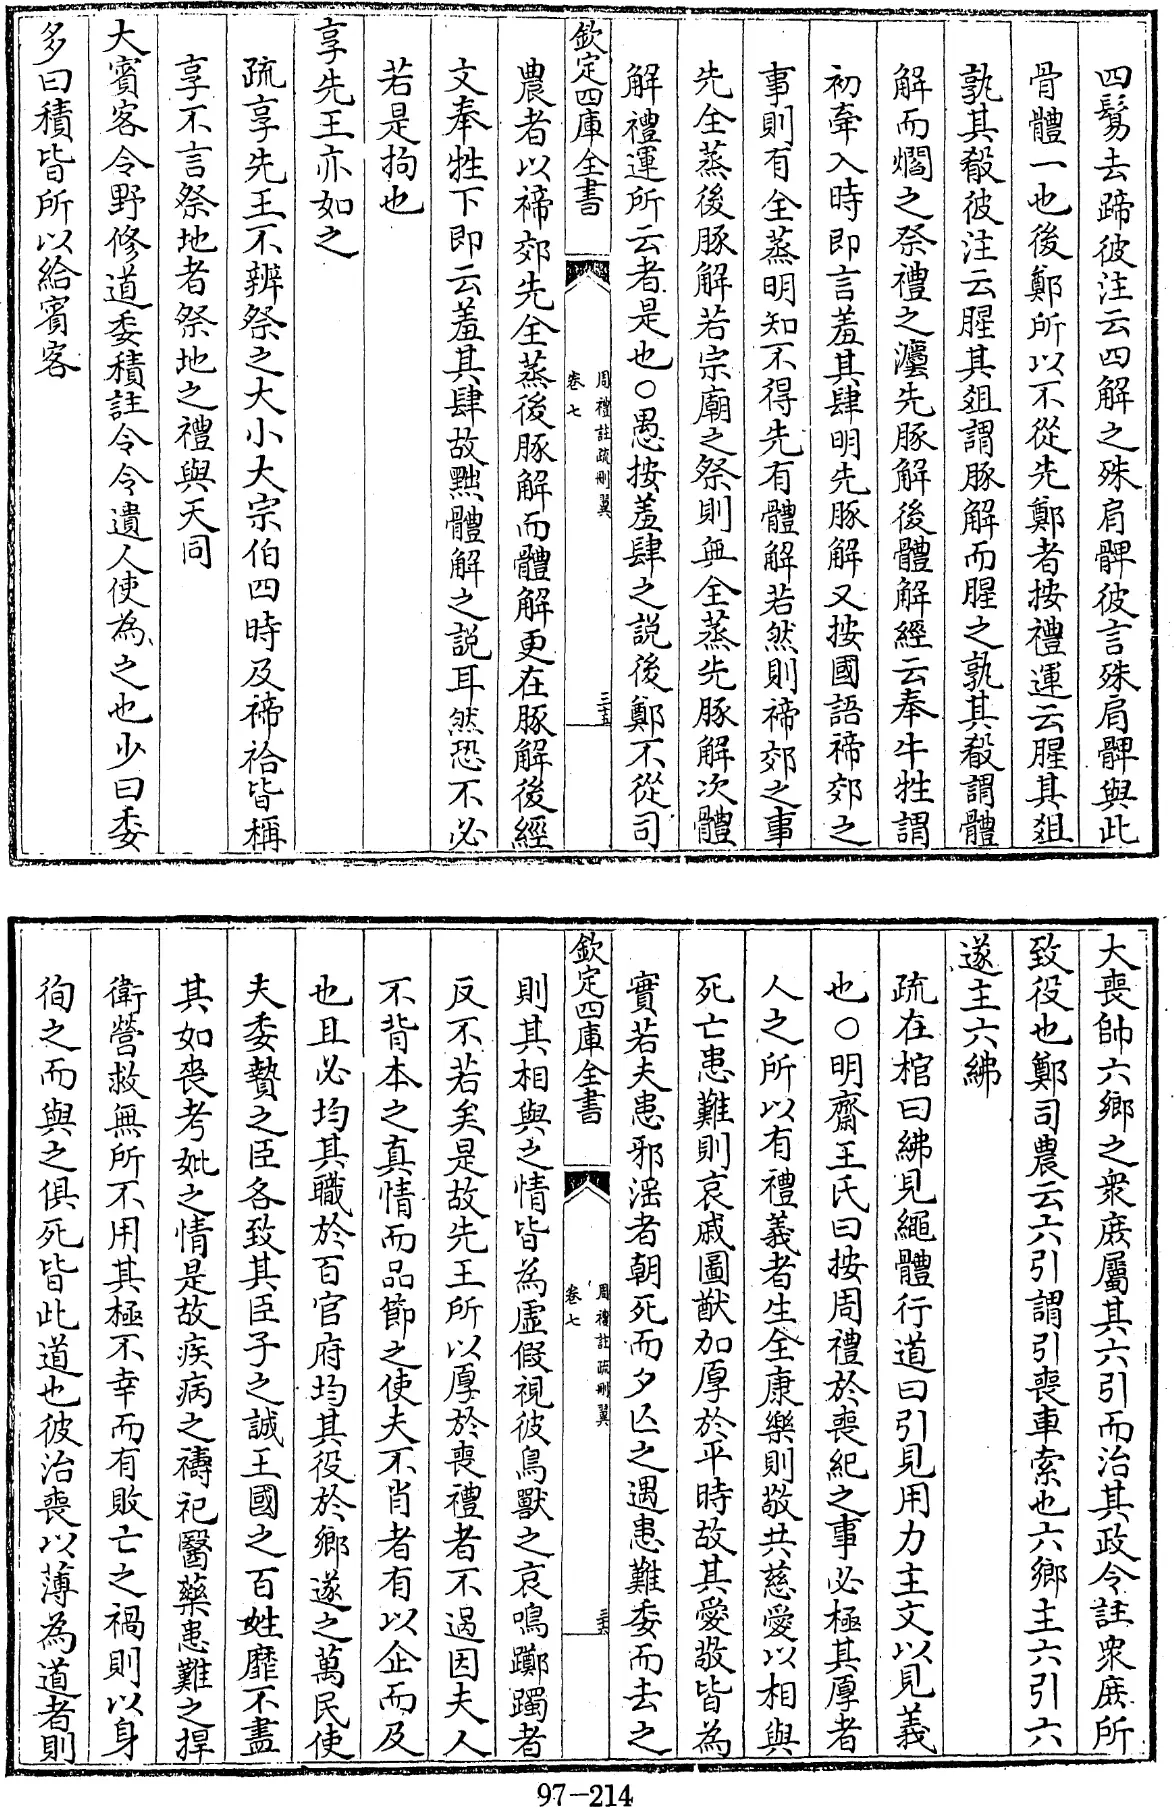 四鬄去蹄彼注云四解之殊肩髀彼言殊肩髀與此
骨體一也後鄭所以不從先鄭者按禮運云腥其俎
孰其殽彼注云腥其俎謂豚解而腥之孰其殽謂體
解而爓之祭禮之灋先豚解後體解經云奉牛牲謂
初牽入時即言羞其肆明先豚解又按國語禘郊之
事則有全烝明知不得先有體解若然則禘郊之事
先全烝後豚解若宗廟之祭則無全烝先豚解次體
解禮運所云者是也○愚按羞肆之説後鄭不從司
欽定四庫全書
周禮註疏刪翼
卷七
三十五
農者以禘郊先全烝後豚解而體解更在豚解後經
文奉牲下即云羞其肆故黜體解之説耳然恐不必
若是拘也
享先王亦如之
疏享先王不辨祭之大小大宗伯四時及禘祫皆稱
享不言祭地者祭地之禮與天同
大賓客令野修道委積註令令遺人使為之也少曰委
多曰積皆所以給賓客
大喪帥六鄉之衆庶屬其六引而治其政令註衆庶所
致役也鄭司農云六引謂引喪車索也六鄉主六引六
遂主六紼
疏在棺曰紼見繩體行道曰引見用力主文以見義
也○明齋王氏曰按周禮於喪紀之事必極其厚者
人之所以有禮義者生全康樂則敬共慈愛以相與
死亡患難則哀戚圖猷加厚於平時故其愛敬皆為
實若夫患邪淫者朝死而夕亾之遇患難委而去之
欽定四庫全書
周禮註疏刪翼
卷七
三十六
則其相與之情皆為虛假視彼鳥獸之哀鳴躑躅者
反不若矣是故先王所以厚於喪禮者不過因夫人
不背本之真情而品節之使夫不肖者有以企而及
也且必均其職於百官府均其役於鄉遂之萬民使
夫委贄之臣各致其臣子之誠王國之百姓靡不盡
其如喪考妣之情是故疾病之禱祀醫藥患難之捍
衛營救無所不用其極不幸而有敗亡之禍則以身
徇之而與之俱死皆此道也彼治喪以薄為道者則
97-214